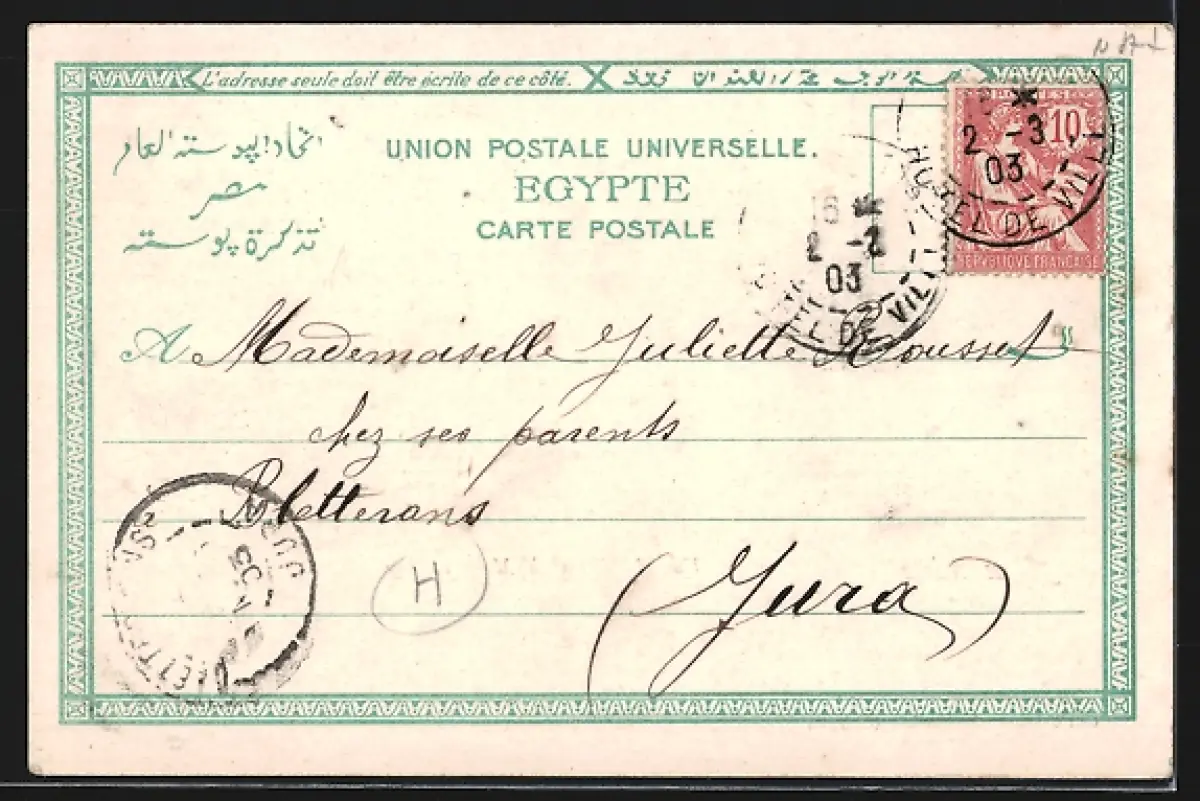 L'adresse seule doit être écrite de ce côté.
اتحاد البوسته العام
UNION POSTALE UNIVERSELLE.
مصر
EGYPTE
تذكرة بوسته
CARTE POSTALE
POSTES
10
REPVBLIQUE FRANÇAISE
* 2 -3 03
HOTEL DE VILLE
16 * 2 -2 03
L DE VILLE
A Mademoiselle Juliette Rousset
chez ses parents
Bletterans
(Jura)
H